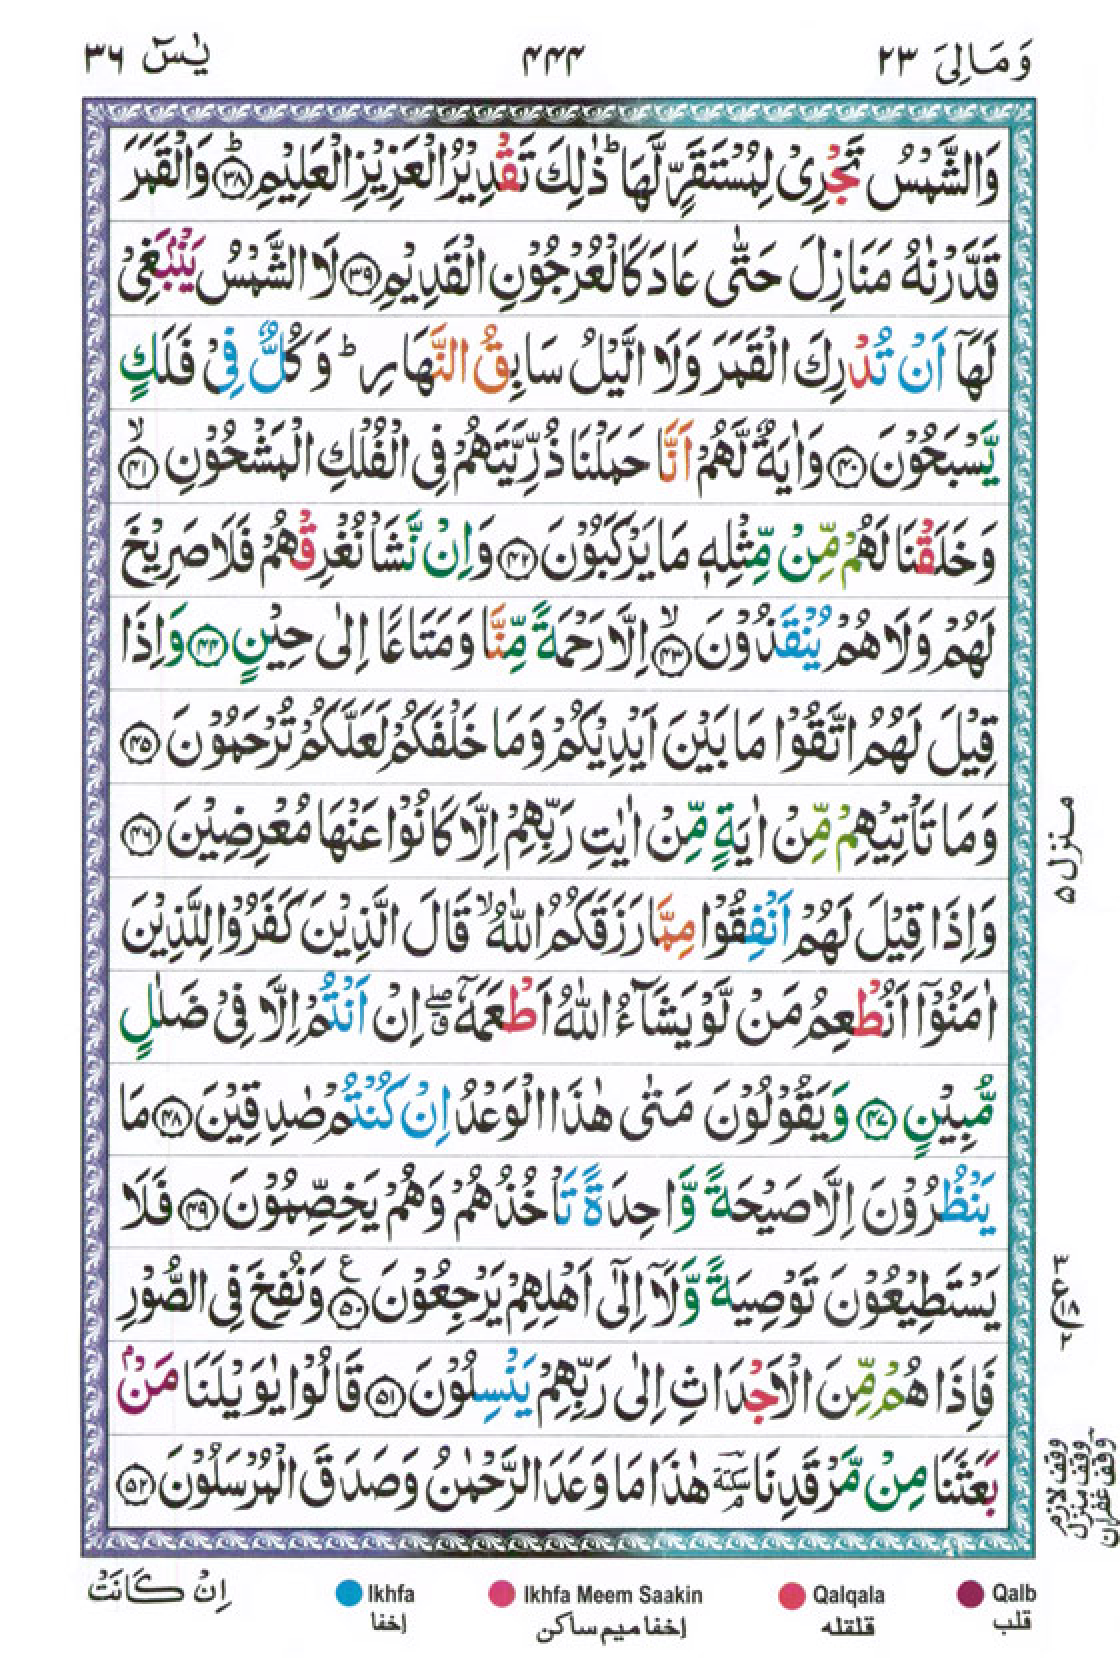 وَمَالِیَ ٢٣
۴۴۴
یٰسٓ ٣٦
وَالشَّمْسُ تَجْرِیْ لِمُسْتَقَرٍّ لَّهَا ؕ ذٰلِكَ تَقْدِیْرُ الْعَزِیْزِ الْعَلِیْمِ ؕ ﴿۳۸﴾ وَالْقَمَرَ
قَدَّرْنٰهُ مَنَازِلَ حَتّٰی عَادَ كَالْعُرْجُوْنِ الْقَدِیْمِ ﴿۳۹﴾ لَا الشَّمْسُ یَنْۢبَغِیْ
لَهَاۤ اَنْ تُدْرِكَ الْقَمَرَ وَلَا الَّیْلُ سَابِقُ النَّهَارِ ؕ وَكُلٌّ فِیْ فَلَكٍ
یَّسْبَحُوْنَ ﴿۴۰﴾ وَاٰیَةٌ لَّهُمْ اَنَّا حَمَلْنَا ذُرِّیَّتَهُمْ فِی الْفُلْكِ الْمَشْحُوْنِ ۙ ﴿۴۱﴾
وَخَلَقْنَا لَهُمْ مِّنْ مِّثْلِهٖ مَا یَرْكَبُوْنَ ﴿۴۲﴾ وَاِنْ نَّشَاْ نُغْرِقْهُمْ فَلَا صَرِیْخَ
لَهُمْ وَلَا هُمْ یُنْقَذُوْنَ ۙ ﴿۴۳﴾ اِلَّا رَحْمَةً مِّنَّا وَمَتَاعًا اِلٰی حِیْنٍ ﴿۴۴﴾ وَاِذَا
قِیْلَ لَهُمُ اتَّقُوْا مَا بَیْنَ اَیْدِیْكُمْ وَمَا خَلْفَكُمْ لَعَلَّكُمْ تُرْحَمُوْنَ ﴿۴۵﴾
وَمَا تَاْتِیْهِمْ مِّنْ اٰیَةٍ مِّنْ اٰیٰتِ رَبِّهِمْ اِلَّا كَانُوْا عَنْهَا مُعْرِضِیْنَ ﴿۴۶﴾
وَاِذَا قِیْلَ لَهُمْ اَنْفِقُوْا مِمَّا رَزَقَكُمُ اللّٰهُ ۙ قَالَ الَّذِیْنَ كَفَرُوْا لِلَّذِیْنَ
اٰمَنُوْۤا اَنُطْعِمُ مَنْ لَّوْ یَشَآءُ اللّٰهُ اَطْعَمَهٗۤ ۖ اِنْ اَنْتُمْ اِلَّا فِیْ ضَلٰلٍ
مُّبِیْنٍ ﴿۴۷﴾ وَیَقُوْلُوْنَ مَتٰی هٰذَا الْوَعْدُ اِنْ كُنْتُمْ صٰدِقِیْنَ ﴿۴۸﴾ مَا
یَنْظُرُوْنَ اِلَّا صَیْحَةً وَّاحِدَةً تَاْخُذُهُمْ وَهُمْ یَخِصِّمُوْنَ ﴿۴۹﴾ فَلَا
یَسْتَطِیْعُوْنَ تَوْصِیَةً وَّلَاۤ اِلٰۤی اَهْلِهِمْ یَرْجِعُوْنَ ﴿۵۰﴾ ع وَنُفِخَ فِی الصُّوْرِ
فَاِذَا هُمْ مِّنَ الْاَجْدَاثِ اِلٰی رَبِّهِمْ یَنْسِلُوْنَ ﴿۵۱﴾ قَالُوْا یٰوَیْلَنَا مَنْۢ
بَعَثَنَا مِنْ مَّرْقَدِنَا سكتة هٰذَا مَا وَعَدَ الرَّحْمٰنُ وَصَدَقَ الْمُرْسَلُوْنَ ﴿۵۲﴾
منزل ۵
٣
ع ١٨
٢
وقف لازم
وقف منزل
وقف غفران
Qalb
قلب
Qalqala
قلقله
Ikhfa Meem Saakin
إخفا ميم ساكن
Ikhfa
إخفا
اِنْ كَانَتْ